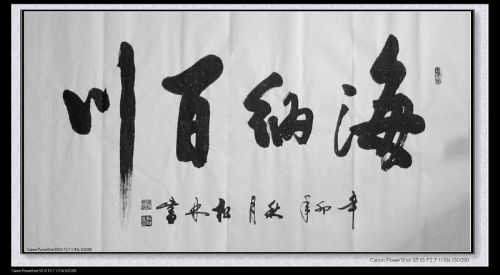 海纳百川
辛卯年秋月松林書
Canon PowerShot S5 IS F2.7 1/16s ISO200
Canon PowerShot S5 IS F2.7 1/16s ISO200
Canon PowerShot S5 IS F2.7 1/16s ISO200